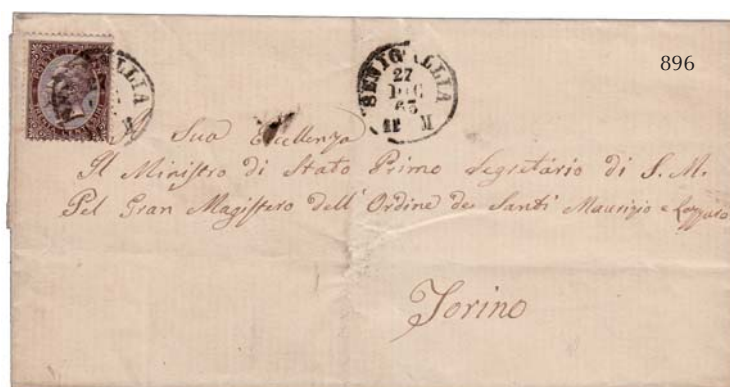 896
SENIGALLIA
27
DIC
63
11 M
Sua Eccellenza
Il Ministro di Stato Primo Segretario di S. M.
Pel Gran Magistero dell' Ordine de Santi Maurizio e Lazzaro
Torino